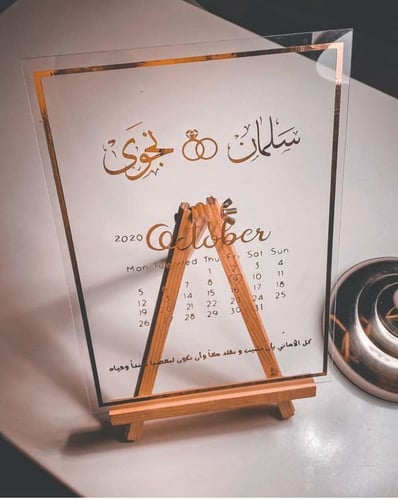 سلمان نجوى
2020 October
Mon Tue Wed Thu Fri Sat Sun
1 2 3 4
5 7 8 9 10 11
12 14 15 16 17 18
19 20 21 22 23 24 25
26 28 29 30 31
كل الأماني بأن نشيب و معاً وأن نكون لبعضنا سنداً وحياه